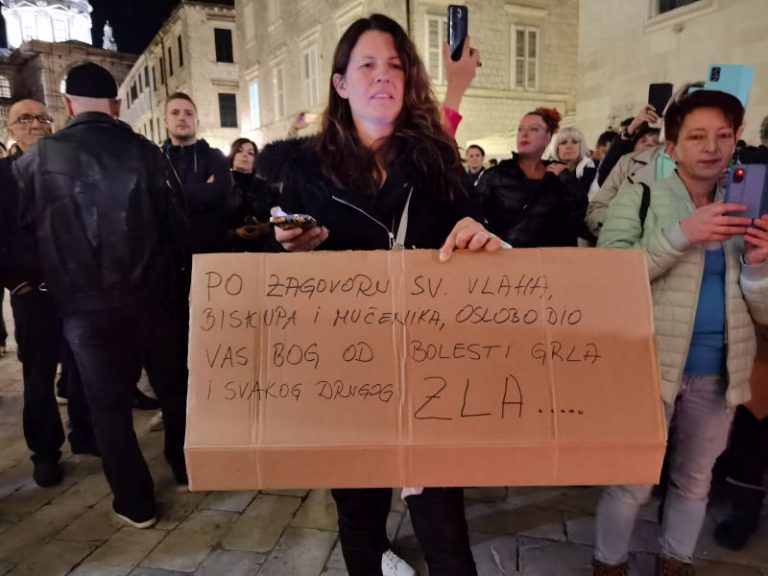 PO ZAGOVORU SV. VLAHA,
BISKUPA I MUČENIKA, OSLOBODIO
VAS BOG OD BOLESTI GRLA
I SVAKOG DRUGOG ZLA.....